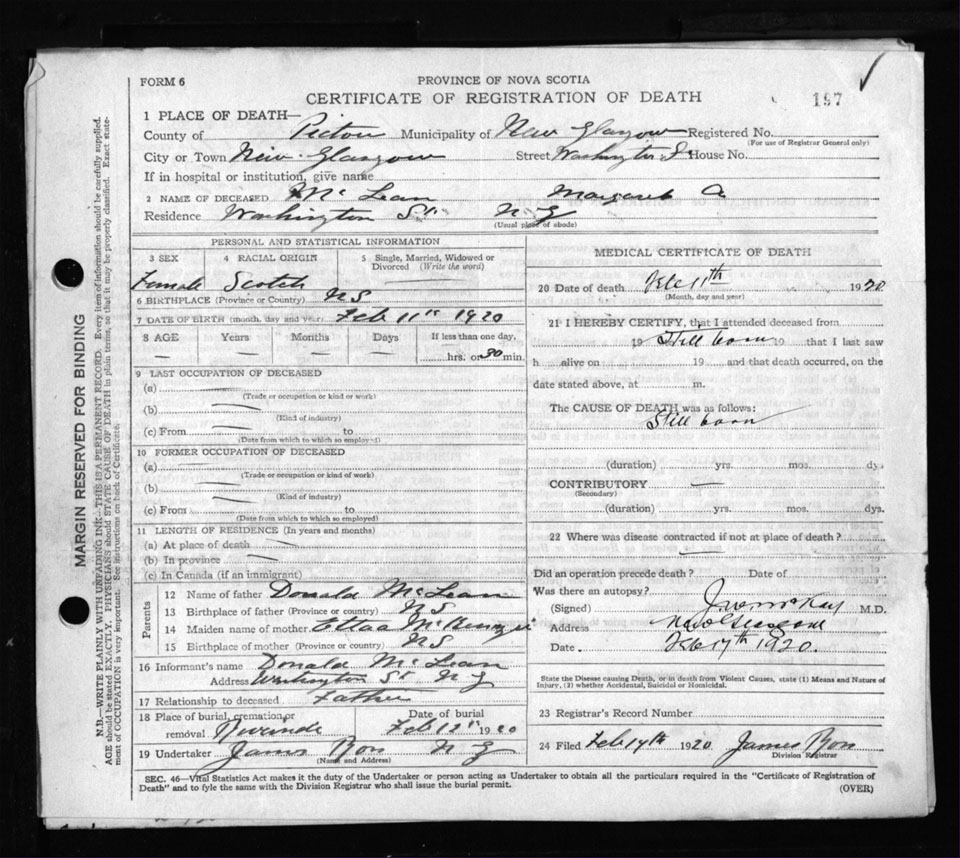 FORM 6
PROVINCE OF NOVA SCOTIA
CERTIFICATE OF REGISTRATION OF DEATH
197
1 PLACE OF DEATH—
County of Pictou Municipality of New Glasgow Registered No.
(For use of Registrar General only)
City or Town New Glasgow Street Washington St House No.
If in hospital or institution, give name
2 NAME OF DECEASED McLean Margaret A
Residence Washington St. N G
(Usual place of abode)
PERSONAL AND STATISTICAL INFORMATION
3 SEX 4 RACIAL ORIGIN 5 Single, Married, Widowed or Divorced (Write the word)
Female Scotch
6 BIRTHPLACE (Province or Country) N S
7 DATE OF BIRTH (month, day and year) Feb 11th 1920
8 AGE Years Months Days If less than one day,
— — — — hrs. or 30 min.
9 LAST OCCUPATION OF DECEASED
(a)
(Trade or occupation or kind or work)
(b)
(Kind of industry)
(c) From to
(Date from which to which so employed)
10 FORMER OCCUPATION OF DECEASED
(a)
(Trade or occupation or kind of work)
(b)
(Kind of industry)
(c) From to
(Date from which to which so employed)
11 LENGTH OF RESIDENCE (In years and months)
(a) At place of death
(b) In province
(c) In Canada (if an immigrant)
Parents
12 Name of father Donald McLean
13 Birthplace of father (Province or country) N S
14 Maiden name of mother McKenzie
15 Birthplace of mother (Province or country) N S
16 Informant's name Donald McLean
Address Washington St N G
17 Relationship to deceased Father
18 Place of burial, cremation or removal Date of burial Feb 12th 1920
19 Undertaker James Ross N G
(Name and Address)
MEDICAL CERTIFICATE OF DEATH
20 Date of death Feb 11th 1920
(Month, day and year)
21 I HEREBY CERTIFY, that I attended deceased from
19 Still born 19 that I last saw
h alive on 19 and that death occurred, on the
date stated above, at m.
The CAUSE OF DEATH was as follows:
Still born
(duration) yrs. mos. dys
CONTRIBUTORY —
(Secondary)
(duration) yrs. mos. dys.
22 Where was disease contracted if not at place of death?
—
Did an operation precede death? Date of
Was there an autopsy?
(Signed) McKay M.D.
Address New Glasgow
Date Feb 17th 1920.
State the Disease causing Death, or in death from Violent Causes, state (1) Means and Nature of
Injury, (2) whether Accidental, Suicidal or Homicidal.
23 Registrar's Record Number
24 Filed Feb 19th 1920 James Ross
Division Registrar
SEC. 46—Vital Statistics Act makes it the duty of the Undertaker or person acting as Undertaker to obtain all the particulars required in the "Certificate of Registration of
Death" and to fyle the same with the Division Registrar who shall issue the burial permit. (OVER)
MARGIN RESERVED FOR BINDING
N.B.—WRITE PLAINLY WITH UNFADING INK—THIS IS A PERMANENT RECORD. Every item of information should be carefully supplied.
AGE should be stated EXACTLY. PHYSICIANS should STATE CAUSE OF DEATH in plain terms, so that it may be properly classified. Exact state-
ment of OCCUPATION is very important. See instructions on back of Certificate.